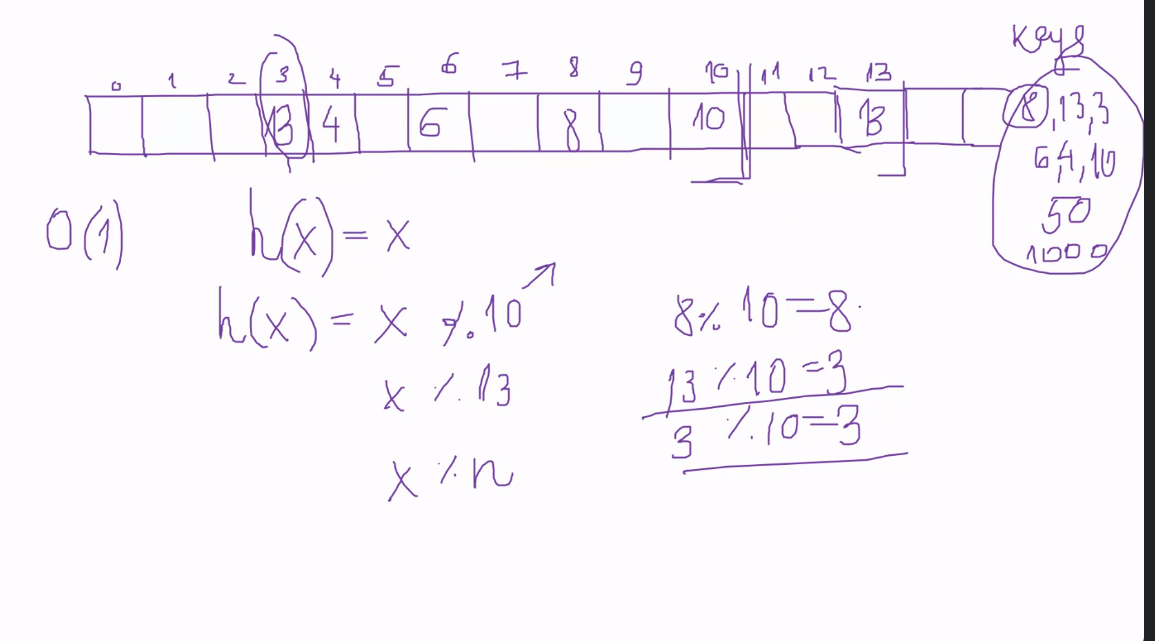 Keys
0 1 2 3 4 5 6 7 8 9 10 11 12 13
13 4 6 8 10 13
8,13,3
6,4,10
50
1000
O(1) h(x) = x
h(x) = x % 10
x % 13
x % n
8 % 10 = 8
13 % 10 = 3
3 % 10 = 3